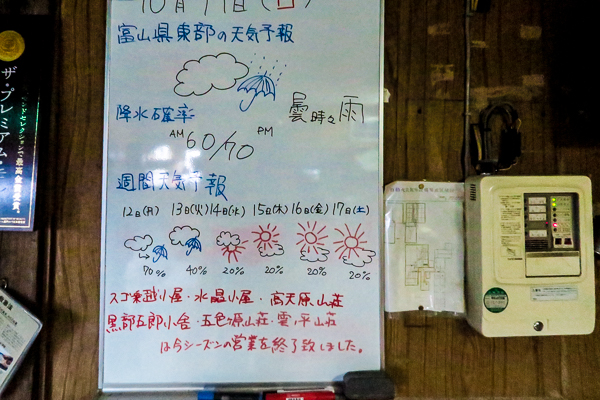 10月11日(日)
富山県東部の天気予報
降水確率
曇時々雨
AM 60/70 PM
週間天気予報
12日(月) 13日(火) 14日(水) 15日(木) 16日(金) 17日(土)
70% 40% 20% 20% 20% 20%
スゴ乗越小屋・水晶小屋・高天原山荘
黒部五郎小舎・五色ヶ原山荘・雲ノ平山荘
は今シーズンの営業を終了致しました。
ザ・プレミアム